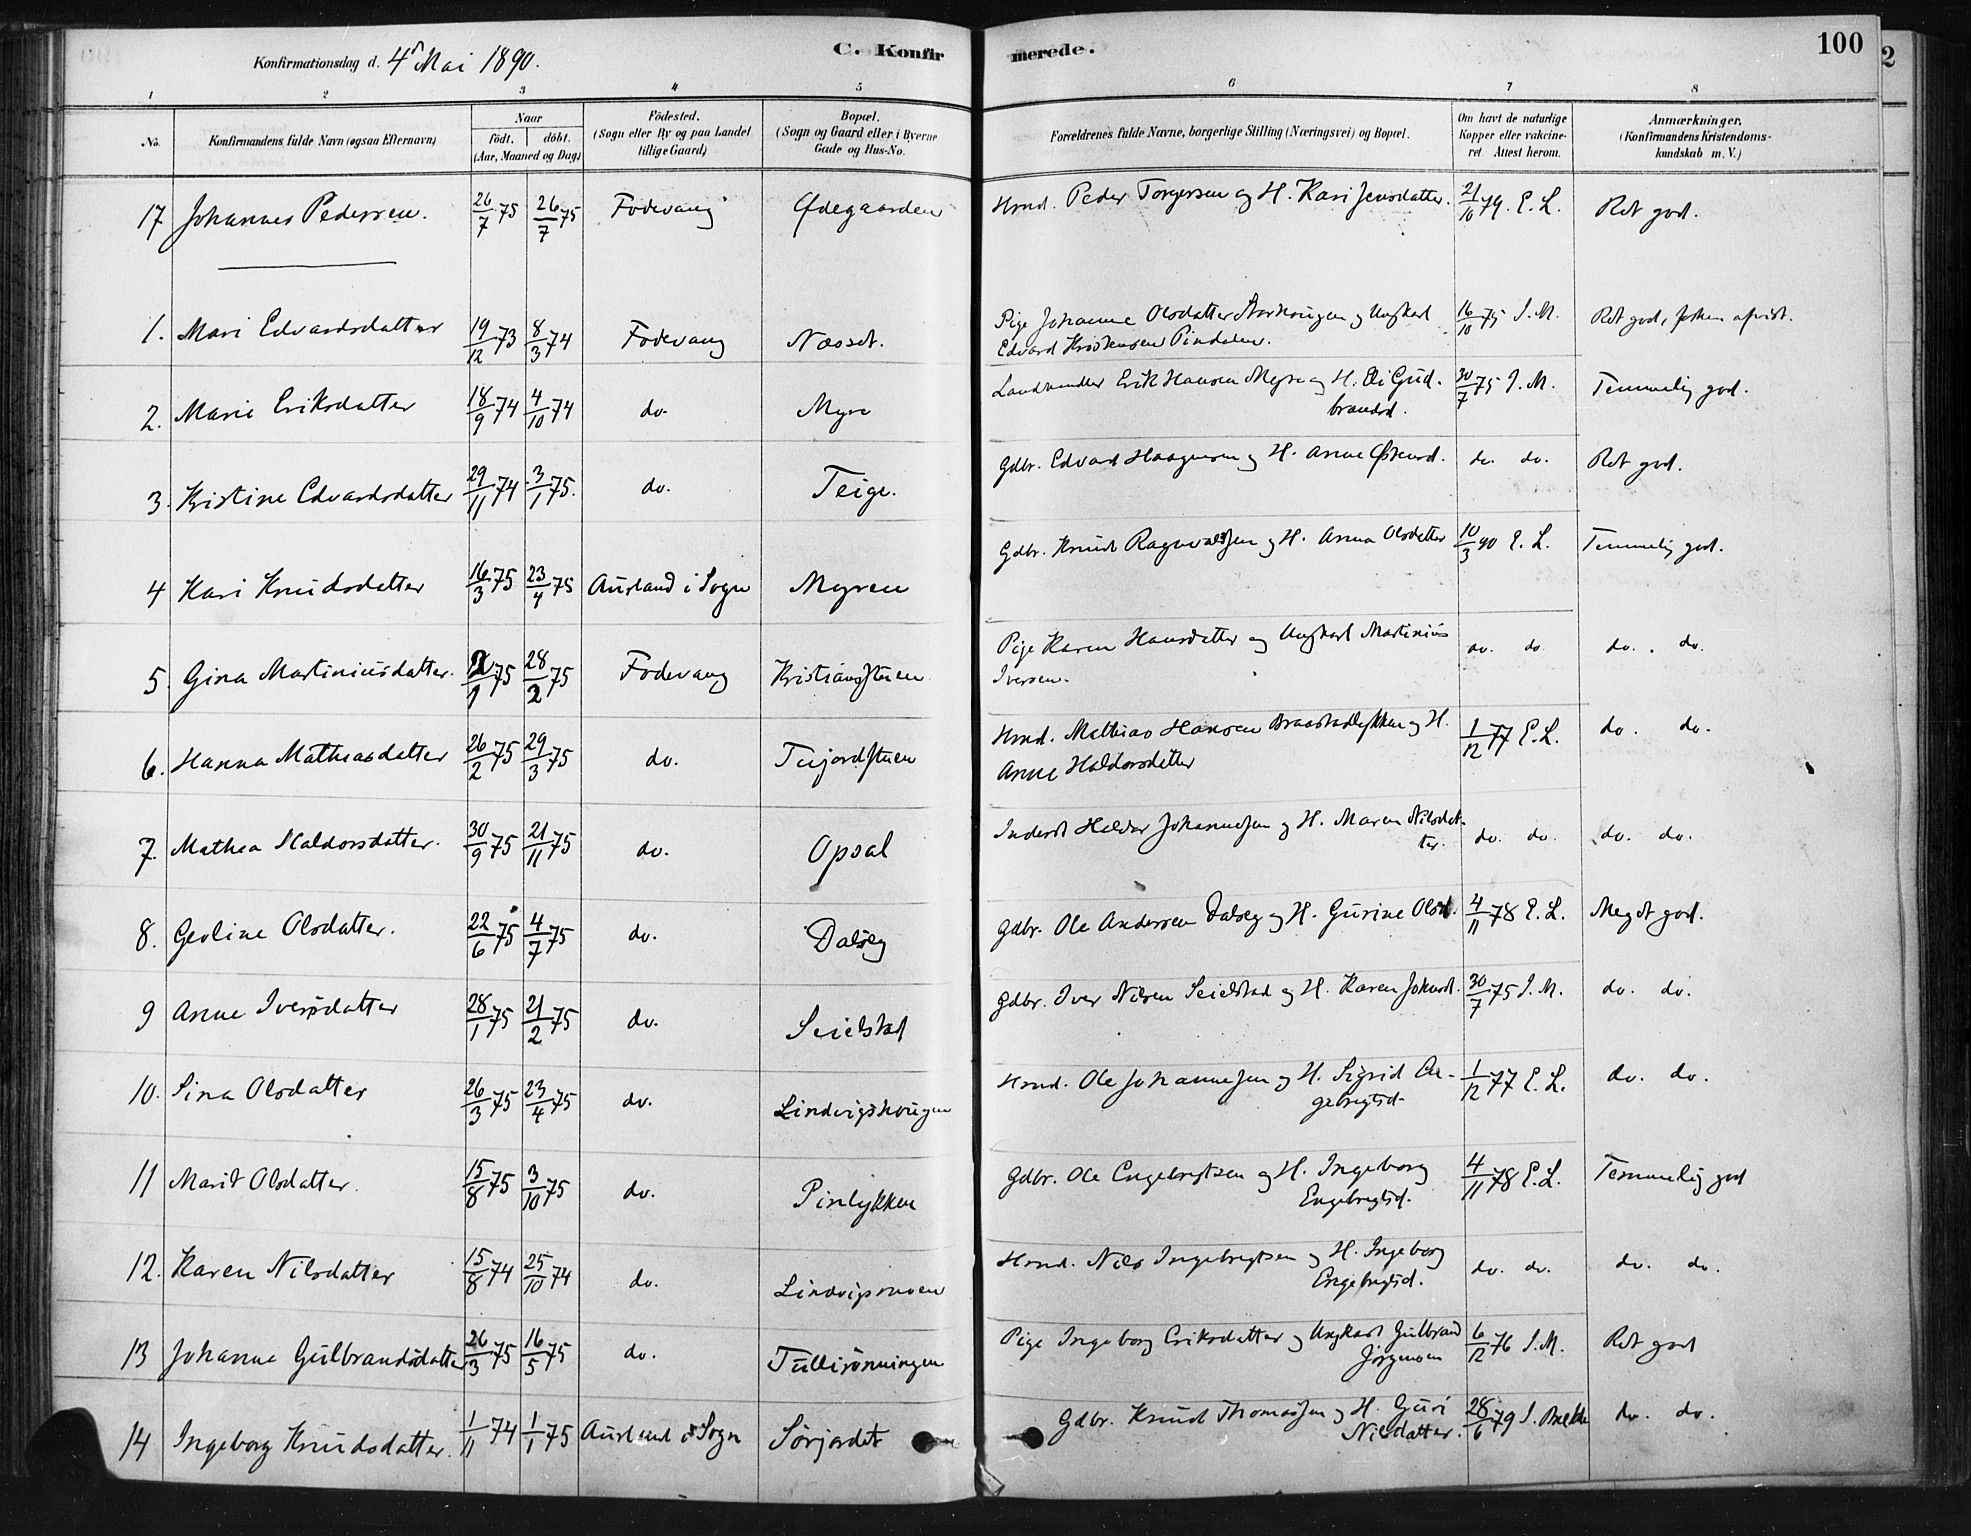 Konfirmationsdag d. 4de Mai 1890.
C. Konfir
merede.
100
2
1 2 3 4 5 6 7 8
No.
Konfirmandens fulde Navn (ogsaa Efternavn)
Naar
födt. döbt.
(Aar, Maaned og Dag)
Födested.
(Sogn eller By og paa Landet
tillige Gaard)
Bopæl.
(Sogn og Gaard eller i Byerne
Gade og Hus-No.
Forældrenes fulde Navne, borgerlige Stilling (Næringsvei) og Bopæl.
Om havt de naturlige
Kopper eller vakcine-
ret. Attest herom.
Anmærkninger,
(Konfirmandens Kristendoms-
kundskab m. V.)
17 Johannes Pedersen. 26/7 75 26/7 75 Fodvang Ødegaarden Hmd. Peder Torgersen og H. Kari Jensdatter. 21/10 79. E. L. Ret god.
1. Mari Edvardsdatter 19/12 73 8/3 74 Fodvang Næsset. Pige Johanne Olsdatter og Ungkarl 16/10 75 J. M. Ret god,
Edvard Kristensen Pindalen.
2. Marie Eriksdatter 18/9 74 4/10 74 do. Myre Landhandler Erik Hansen Myre og H. Eli Gud- 30/7 75 J. M. Temmelig god.
brandsd.
3. Kristine Edvardsdatter 29/11 74 3/1 75. do. Teige. Gdbr. Edvard Haagensen og H. Anne do. do. Ret god.
4 Kari Knudsdatter 16/3 75 23/4 75 Aurland i Sogn Myren Gdbr. Knud Ragnvaldsen og H. Anna Olsdatter 10/3 90 E. L. Temmelig god.
5. Gina Martiniusdatter. 2/1 75 28/2 75 Fodvang Kristiansstuen Pige Karen Hansdatter og Ungkarl Martinius do. do. do. do.
Iversen.
6. Hanna Mathiasdatter 26/2 75 29/3 75 do. Hmd. Mathias Hansen Braastadlykken og H. 1/12 77 E. L. do. do.
Anne Haldorsdatter
7. Mathea Haldorsdatter. 30/9 75 21/11 75 do. Opsal Inderst Haldor Johannesen og H. Maren Nilsdat- do. do. do. do.
ter.
8. Geoline Olsdatter. 22/6 75 4/7 75 do. Dalseg Gdbr. Ole Andersen Dalseg og H. Gurine Olsd. 4/11 78 E. L. Meget god.
9 Anne Iversdatter 28/1 75 21/2 75 do. Seielstad Gdbr. Iver Nilsen Seielstad og H. Karen Johansd. 30/7 75 J. M. do. do.
10. Sina Olsdatter 26/3 75 23/4 75 do. Lindvigshougen Hmd. Ole Johannesen og H. Sigrid En- 1/12 77 E. L. do. do.
gebregtsd.
11 Marit Olsdatter. 15/8 75 3/10 75 do. Pinlykken Gdbr. Ole Engebregtsen og H. Ingeborg 4/11 78 E. L. Temmelig god
Engebregtsd.
12. Karen Nilsdatter 15/8 74 25/10 74 do. Lindvigsmoen Hmd. Nils Ingebregtsen og H. Ingeborg do. do. do. do.
Engebregtsd.
13 Johanne Gulbrandsdatter 26/3 75 16/5 75 do. Tullirönningen Pige Ingeborg Eriksdatter og Ungkarl Gulbrand 6/12 76 J. M. Ret god
Jørgensen
14 Ingeborg Knudsdatter. 1/11 74 1/1 75 Aurland i Sogn Sorjordet Gdbr. Knud Thomassen og H. Guri 28/6 79 J. do. do.
Nilsdatter.